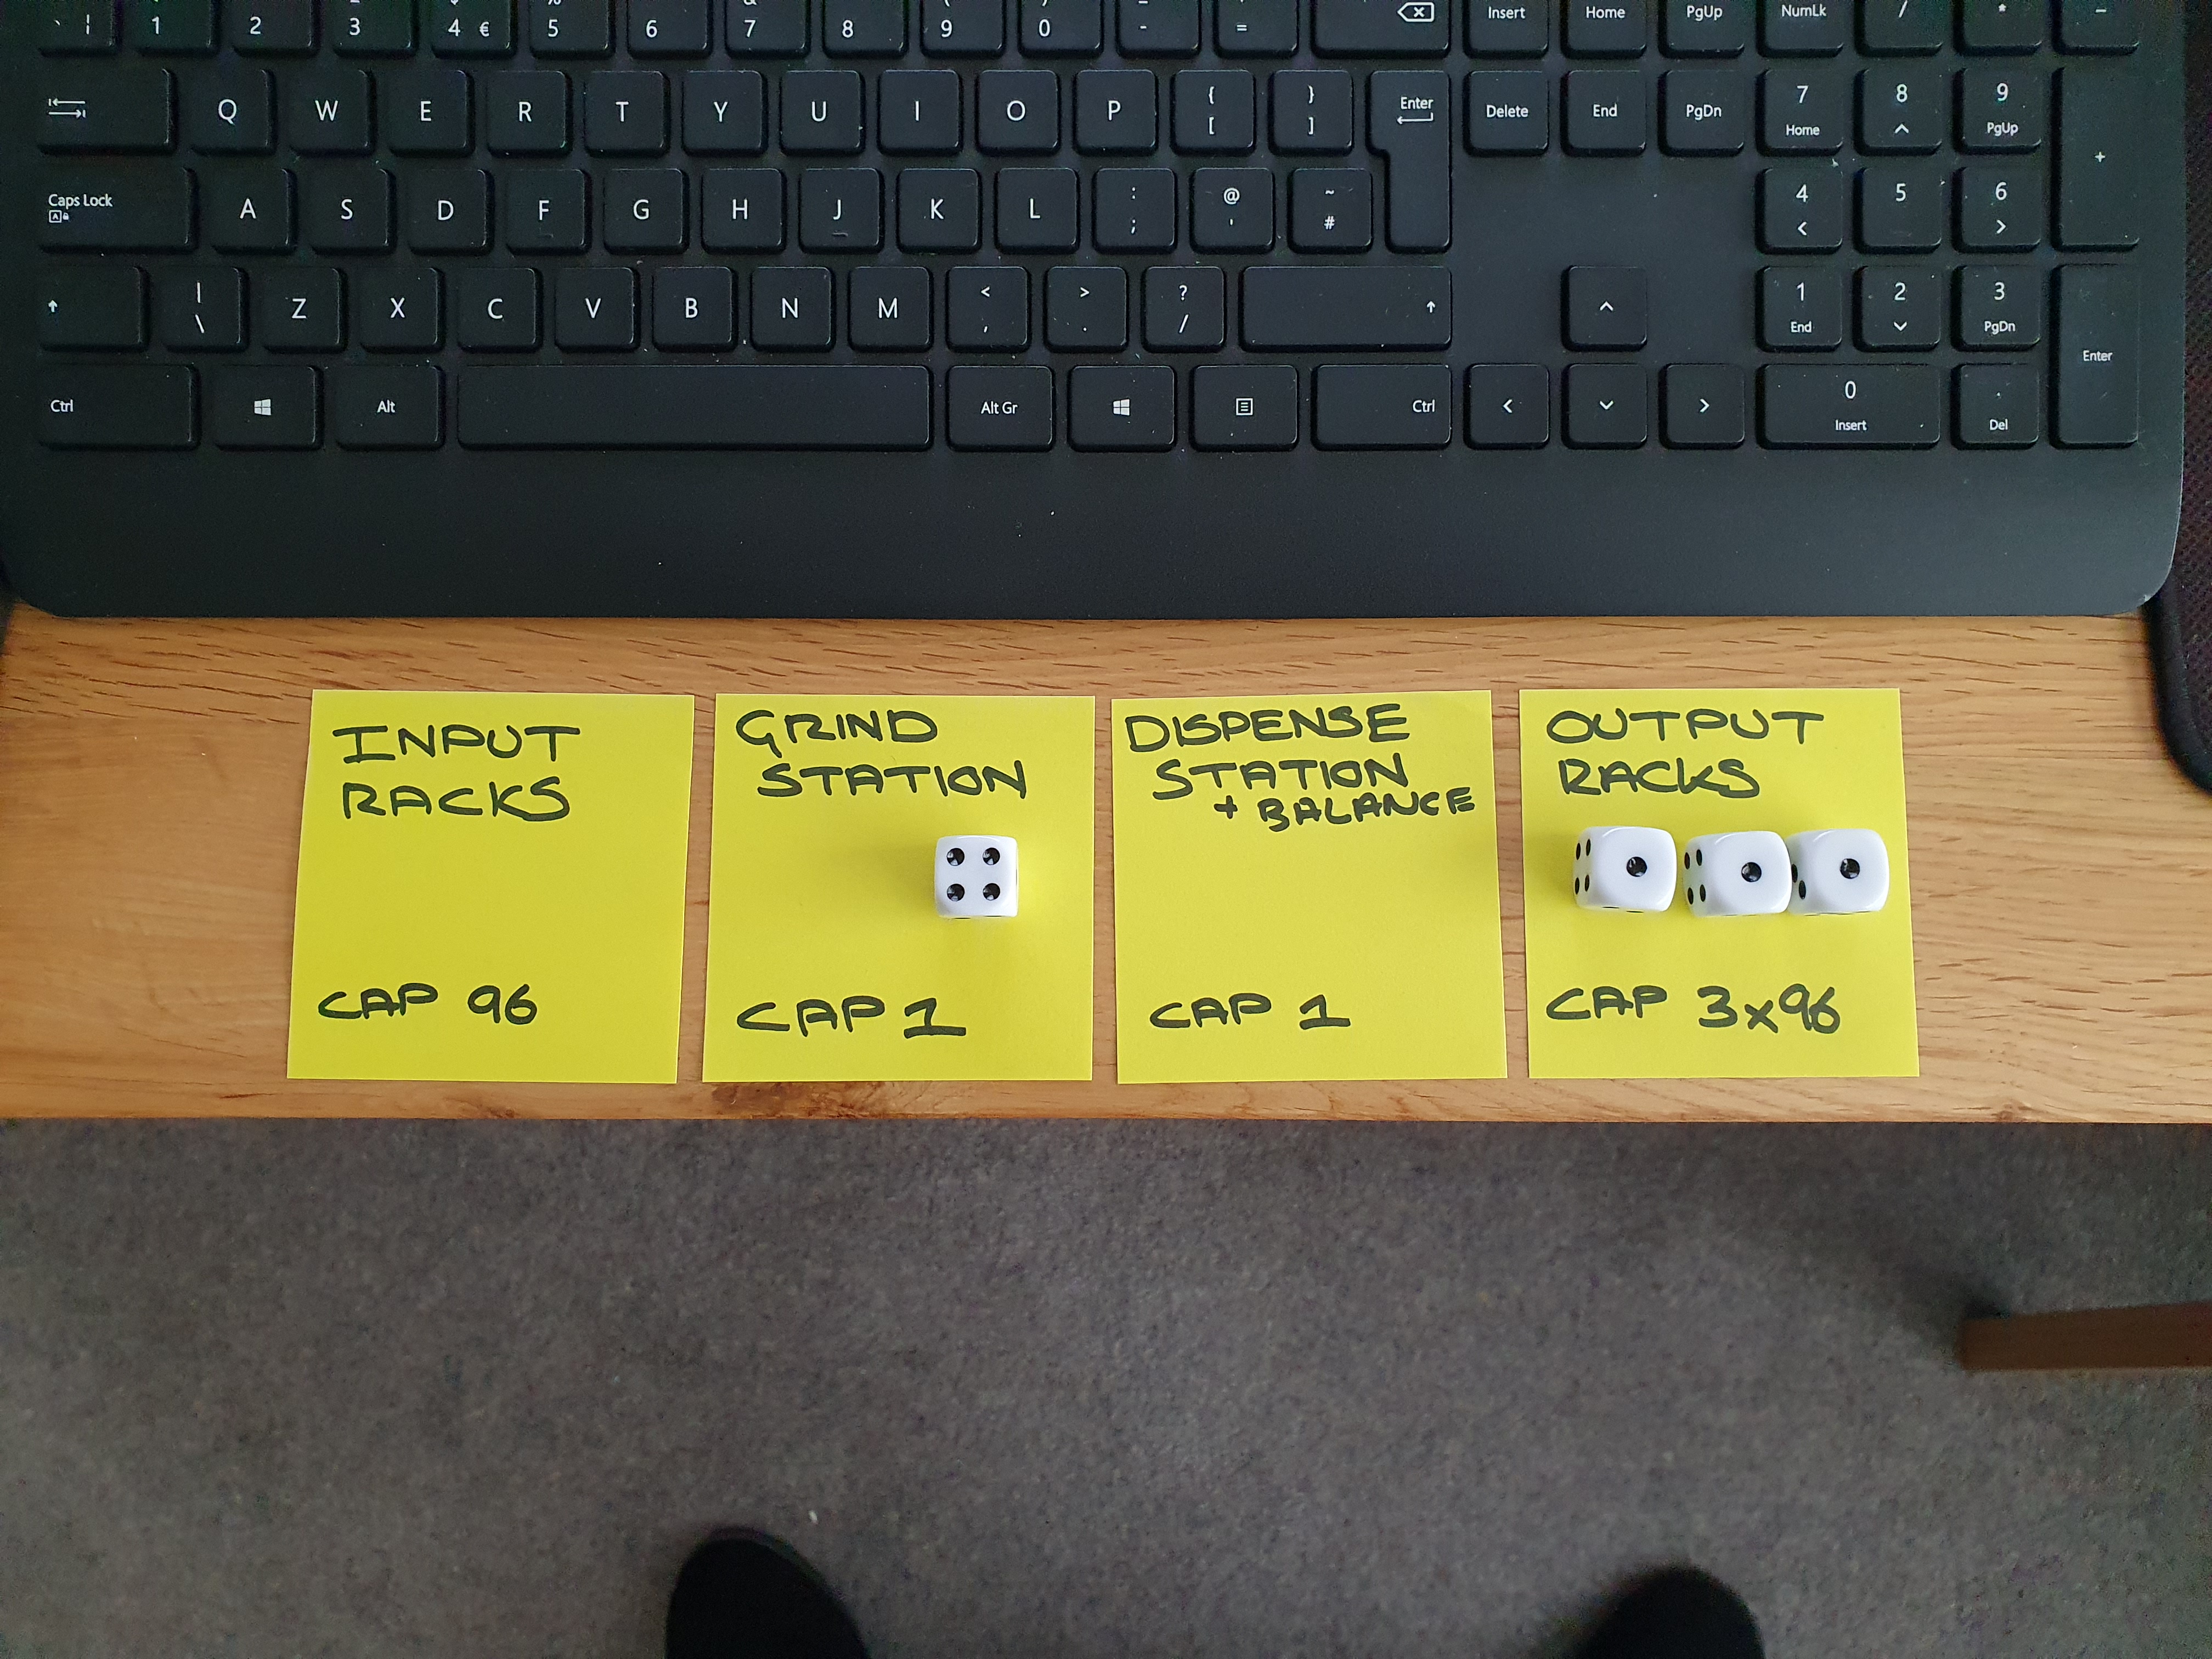 ` ¦ 1 2 3 4 € 5 6 7 8 9 0 - = Insert Home PgUp NumLk / * -
Q W E R T Y U I O P { [ } ] Enter Delete End PgDn 7 Home 8 9 PgUp +
Caps Lock A S D F G H J K L : ; @ ' ~ # 4 < 5 6 >
| \ Z X C V B N M < , > . ? / 1 End 2 3 PgDn Enter
Ctrl Alt Alt Gr Ctrl 0 Insert . Del
INPUT
RACKS
CAP 96
GRIND
STATION
CAP 1
DISPENSE
STATION
+ BALANCE
CAP 1
OUTPUT
RACKS
CAP 3x96